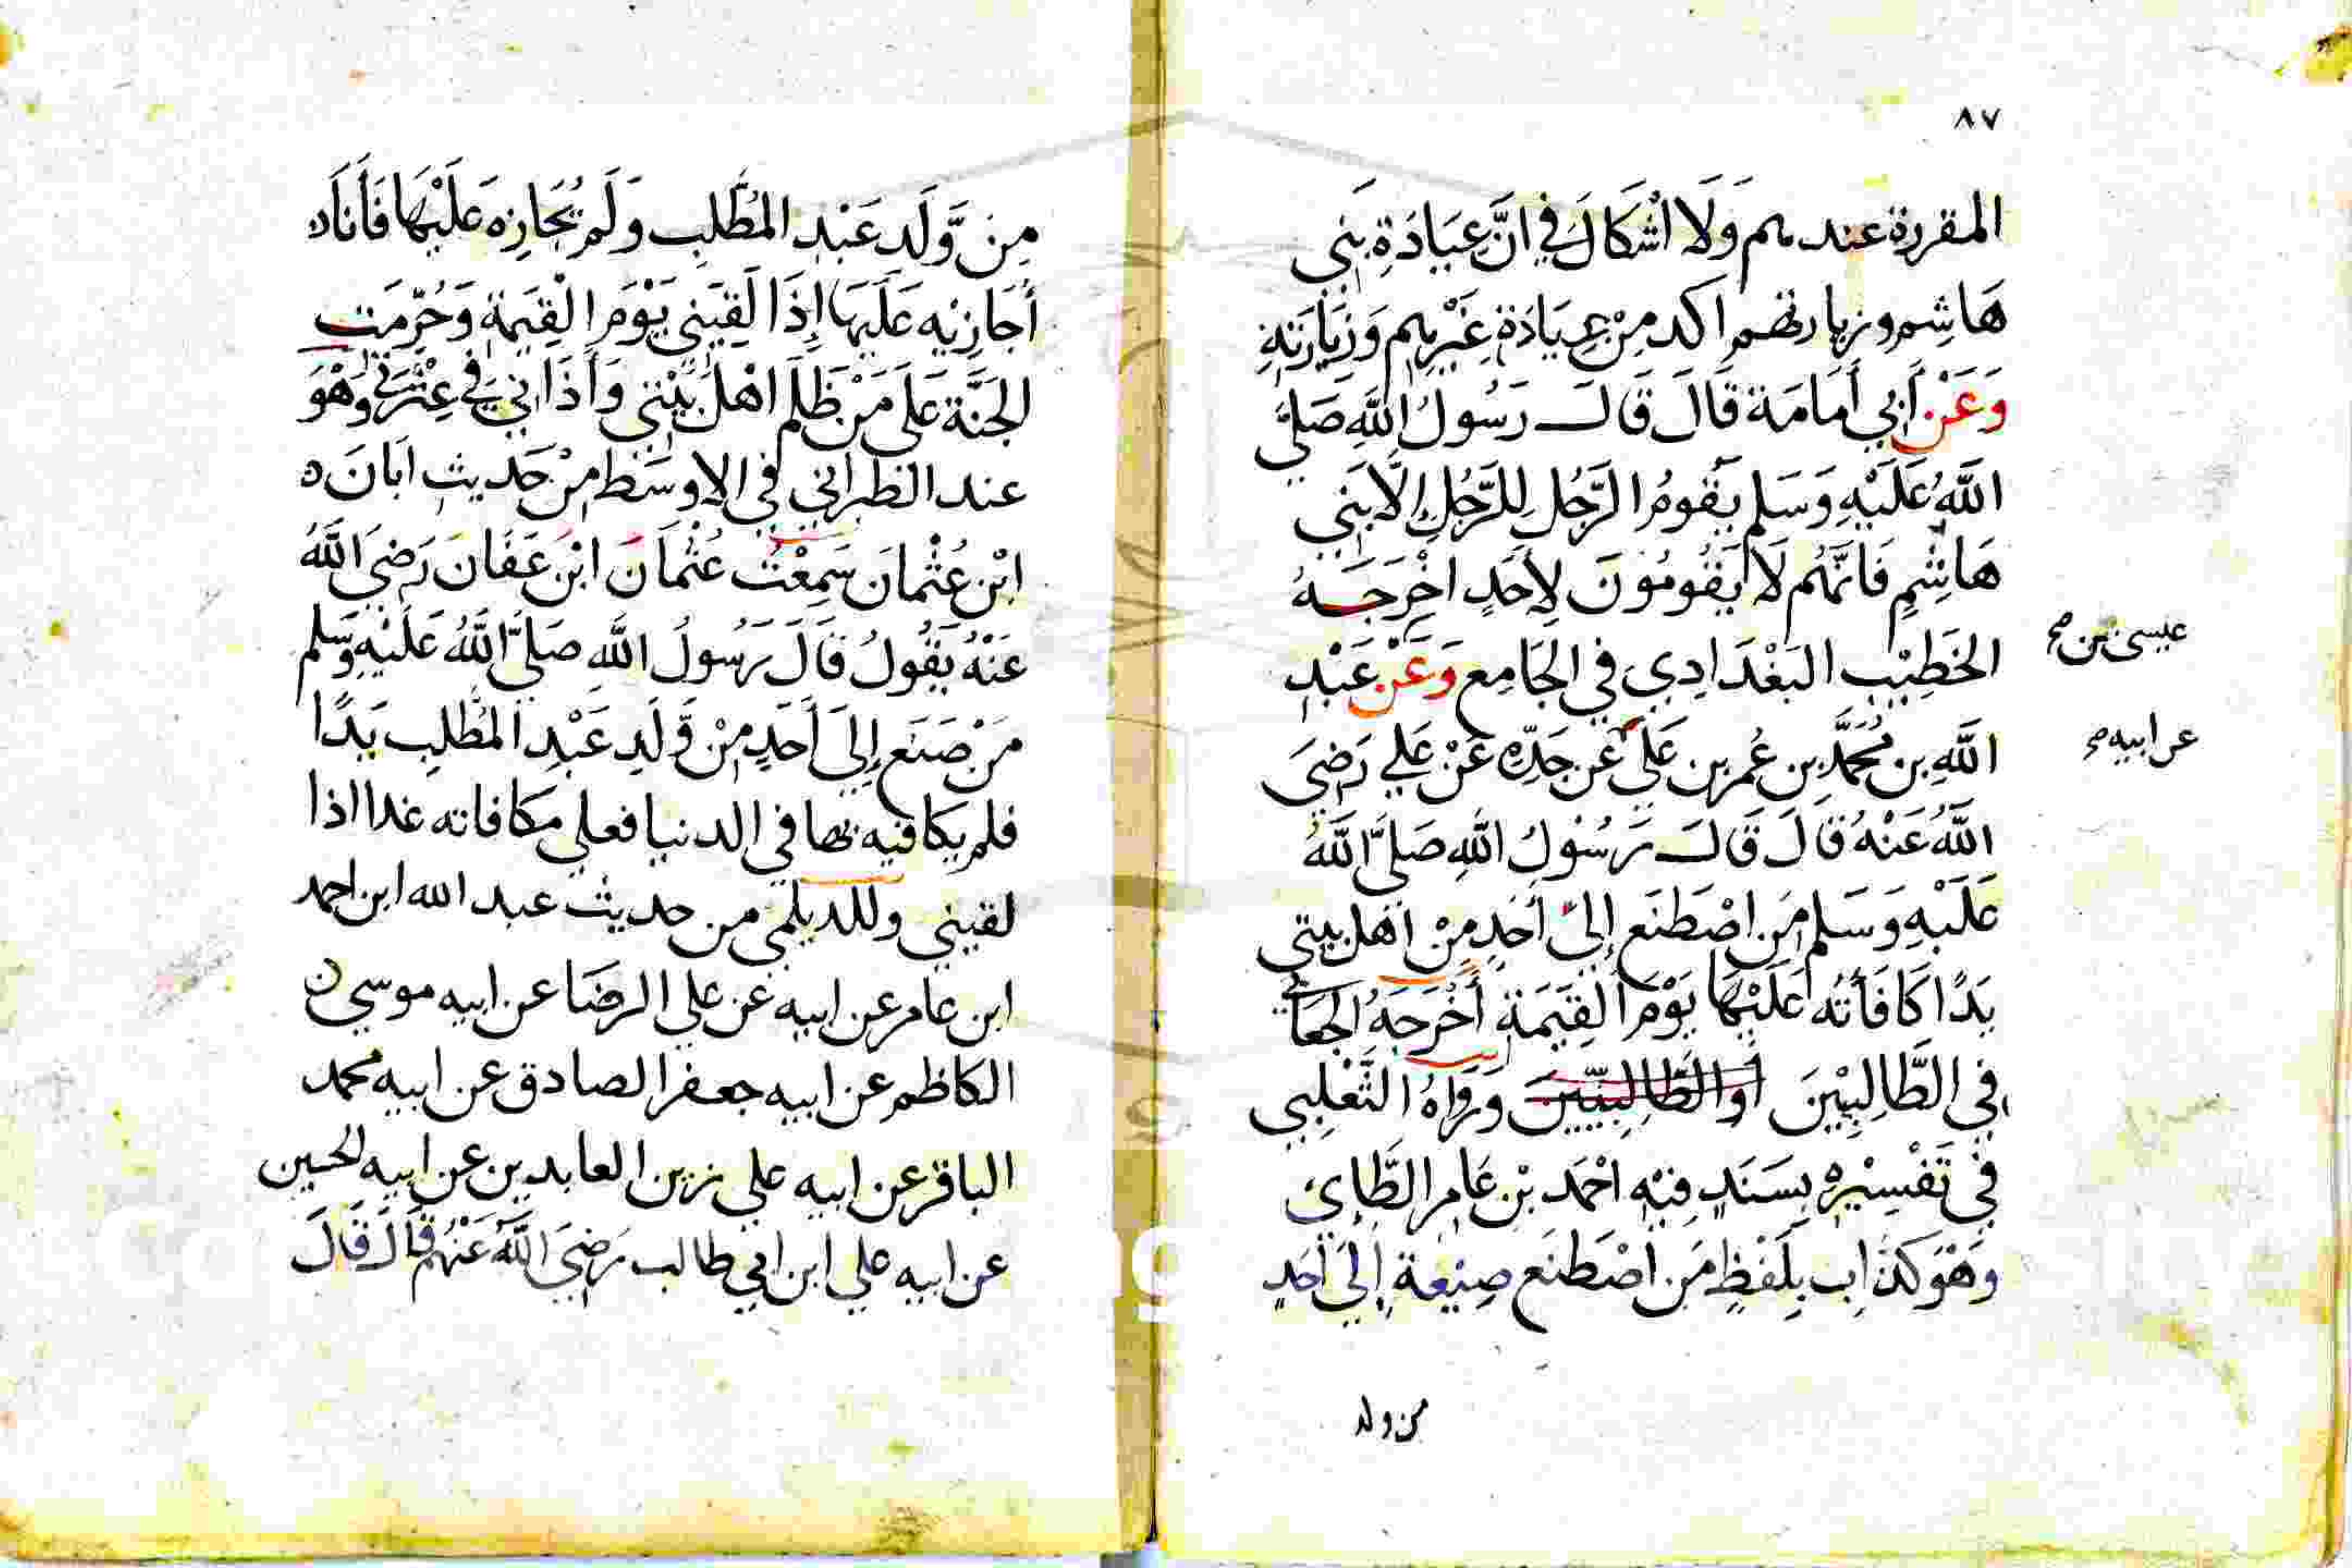 ٨٧
المقررة عندهم وَلَا اُشكَالَ فِي انَّ عِيَادَةِ بَنِي
هَاشِم وزيارتهم اكد مِنْ عِيَادَة غَيْرِهِم وَزِيَارَتِهِ
وَعَنْ أَبِي أُمَامَة قَالَ قَالَ رَسُولُ اللَّهِ صَلَّي
اللَّهُ عَلَيْهِ وَسَلم يَقُومُ الرَّجُلِ لِلرَّجُلِ إِلَّا بَنِي
هَاشِمٍ فَانَّهُم لَا يَقُومُونَ لِأَحَدٍ اخْرَجَهُ
الخَطِيْبِ البَغْدَادِي فِي الجَامِع وَعَنْ عَبْدِ
عيسى بن صح
اللَّهِ بن مُحَمَّد بن عُمر بن عَلَى عَن جَدِّه عَنْ عَلي رَضِيَ
عن ابيه صح
اللَّهُ عَنْهُ قَالَ قَالَ رَسُوْلُ اللَّهِ صَلَّي اللَّهُ
عَلَيْهِ وَسَلم مَن اصْطَنَع إِلَىَ أَحَدٍ مِنْ اهل بيتي
يَدًا كَافَأتُه عَلَيْهَا يَوْمَ الْقِيَمَة أَخْرَجَهُ الجعَابي
في الطَّالِبِيْنَ أو الطَّالِبِيِّينَ وَرَوَاهُ الثَّعْلِبِي
في تَفْسِيْرِه بِسَنَدٍ فِيْهِ احْمَد بْن عَامِر الطَّائي
وَهْوَ كَذَّاب بِلَفْظِ مَن اصْطَنَع صِنِيْعة إِلَىَ أَحَدٍ
من ولد
مِن وَّلَد عَبْدِ المُطَّلِبِ وَلَم يُجَازِه عَلَيْهَا فَأَنَا
أُجَازِيْه عَلَيْهَا إِذَا لَقِيَنِي يَوْمَ الْقِيَمَةِ وَحُرِّمَت
الجَنَّة عَلَى مَنْ ظَلَم اهْلَ بَيْتي وَأَذَاني في عِتْرَتي وَهْوَ
عند الطبراني في الاوسَط مِنْ حَديث ابَانَ
ابْن عُثْمَانَ سَمِعْتُ عُثْمَانَ ابْنَ عَفَانَ رَضِيَ اللَّهُ
عَنْهُ يَقُولُ قَالَ رَسُولُ اللَّهِ صَلَّي اللَّهُ عَلَيْهِ وَسَلم
مَنْ صَنَع إِلَىَ أَحَدٍ مِنْ وَّلَدِ عَبْدِ المُطَّلِبِ يَدًا
فلم يكافيه بها في الدنيا فعلي مكافاته غدا اذا
لقيني وللديلمي من حديث عبد الله ابن احمد
ابن عامر عن ابيه عَن علي الرضَا عن ابيه موسي
الكاظم عن ابيه جعفر الصادق عن ابيه محمد
الباقر عن ابيه علي زين العابدين عن ابيه الحسين
عن ابيه علي ابن ابي طالب رَضِيَ اللَّهُ عَنْهُم قَالَ قَالَ